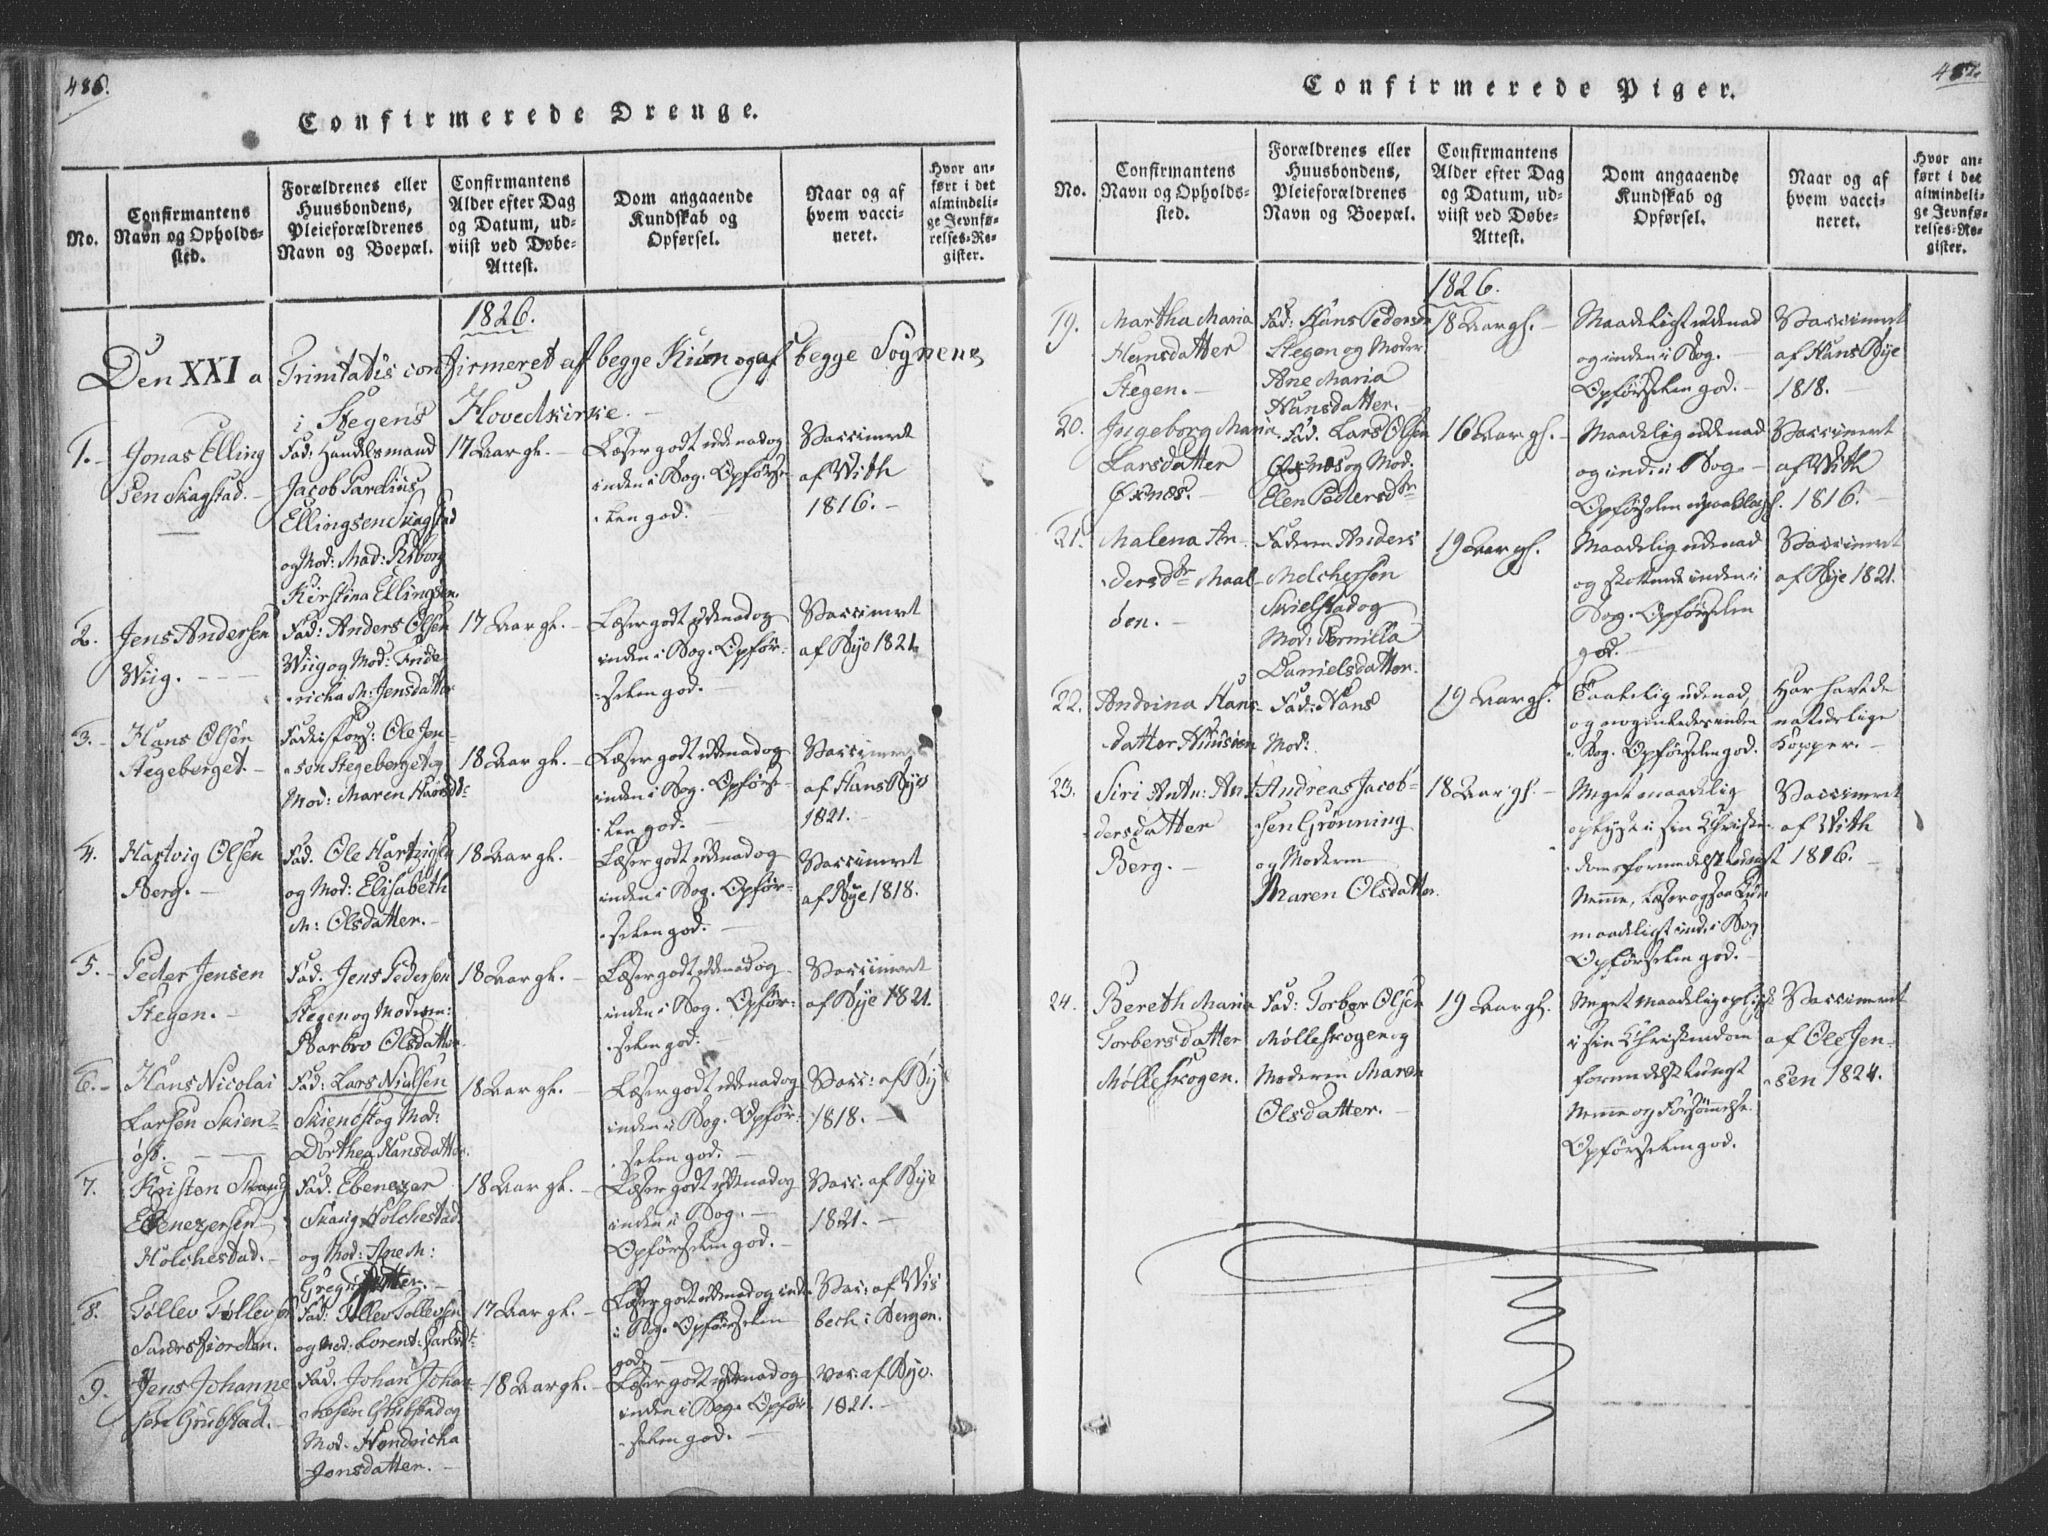 486.
Confirmerede Drenge.
No.
Confirmantens
Navn og Opholds-
sted.
Forældrenes eller
Huusbondens,
Pleieforældrenes
Navn og Boepæl.
Confirmantens
Alder efter Dag
og Datum, ud-
viist ved Døbe-
Attest.
Dom angaaende
Kundskab og
Opførsel.
Naar og af
hvem vacci-
neret.
Hvor an-
ført i det
almindeli-
ge Jevnfø-
relses-Re-
gister.
1826.
Den XXI a Trinitatis confirmeret af begge Kiøn og af begge Sognene
i Stegens Hovedkirke.
1.
Jonas Elling
sen Skagstad.
Fad: Handelsmand
Jacob Parelius
Ellingsen Skagstad
og Mod: Mad:
Kirstina Ellingsen.
17 Aar gl.
Læser godt udenad og
inden i Bog. Opførse-
len god.
Vaccineret
af With
1816.
2.
Jens Andersen
Wiig.
Fad: Anders Olsen
Wiig og Mod: Fride
richa M: Jensdatter
17 Aar gl.
Læser godt udenad og
inden i Bog. Opfør-
selen god.
Vaccineret
af Bye 1821.
3.
Hans Olsen
Stegeberget.
Ole Jen-
sen Stegeberget og
Mod: Maren
18 Aar gl.
Læser godt udenad og
inden i Bog. Opførse-
len god.
Vaccineret
af Hans Bye
1821.
4.
Hartvig Olsen
Berg.
Fad. Ole Hartvigsen
og Mod: Elisabeth
M: Olsdatter.
18 Aar gl.
Læser godt udenad og
inden i Bog. Opfør-
selen god.
Vaccineret
af Bye 1818.
5.
Peder Jensen
Stegen.
Fad: Jens Pedersen
Stegen og Moderen:
Barbro Olsdatter.
18 Aar gl.
Læser godt udenad og
inden i Bog. Opfør-
selen god.
Vaccineret
af Bye 1821.
6.
Hans Nicolai
Larsen Skien-
Fad: Lars Nielsen
og Mod:
Dorthea Hansdatter.
18 Aar gl.
Læser godt udenad og
inden i Bog. Opfør-
selen god.
Vacc: af Bye
1818.
7.
Kristen Skaug
Ebenezersen
Holchestad.
Fad. Ebenezer
Skaug Holchestad
og Mod: Ane M:
18 Aar gl.
Læser godt udenad og
inden i Bog.
Opførselen god.
Vacc: af Bye
1821.
8.
Tollev Tollevsen
Fad: Tollev Tollevsen
og Mod:
17 Aar gl.
Læser godt udenad og inde
i Bog. Opførselen
god.
Vac: af Wis
bech i Bergen.
9.
Jens Johanne
sen Grubstad.
Fad. Johan Johan
nesen Grubstad og
Mod. Hendricha
Jonsdatter.
18 Aar gl.
Læser godt udenad og
inden i Bog. Opfør-
selen god.
Vac. af Bye.
1821.
487.
Confirmerede Piger.
No.
Confirmantens
Navn og Opholds-
sted.
Forældrenes eller
Huusbondens,
Pleieforældrenes
Navn og Boepæl.
Confirmantens
Alder efter Dag
og Datum, ud-
viist ved Døbe-
Attest.
Dom angaaende
Kundskab og
Opførsel.
Naar og af
hvem vacci-
neret.
Hvor an-
ført i det
almindeli-
ge Jevnfø-
relses-Re-
gister.
1826.
19.
Martha Maria
Hansdatter
Stegen.
Fad: Hans Pedersen
Stegen og Moder
Ane Maria
Hansdatter.
18 Aar gl.
Maadeligst udenad
og inden i Bog.
Opførselen god.
Vaccineret
af Hans Bye
1818.
20.
Ingeborg Maria
Larsdatter
Øxnæs.
Fad. Lars Olsen
Øxnæs og Mod.
Elen Pedersdtr
16 Aar gl.
Maadelig udenad
og inde i Bog.
Opførselen upaaklagel.
Vaccineret
af With
1816.
21.
Malena An-
dersdtr Maal-
den.
Faderen Anders
Melchersen
og
Mod: Pernilla
Danielsdatter.
19 Aar gl.
Maadelig udenad
og inden i
Bog. Opførselen
god.
Vaccineret
af Bye 1821.
22.
Andrina Hans
datter
Fad: Hans
Mod:
19 Aar gl.
Taalelig udenad,
og nogenledes inden
i Bog. Opførselen god.
Har havt de
naturlige
Kopper.
23.
Siri An
dersdatter
Berg.
Andreas Jacob-
sen Grønning
og Moderen
Maren Olsdatter.
18 Aar gl.
Meget maadelig
oplyst i sin Christen-
dom formedelst tungt
Nemme, Læser ogsaa kun
maadeligst inde i Bog
Opførselen god.
Vaccineret
af With
1816.
24.
Bereth Maria
Torbersdatter
Mølleskogen.
Fad: Torber Olsen
Mølleskogen og
Moderen Maren
Olsdatter.
19 Aar gl.
Meget maadelig oplyst
i sin Christendom
formedelst tungt
Nemme og Forsømmelse.
Opførselen god.
Vaccineret
af Ole Jen-
sen 1824.